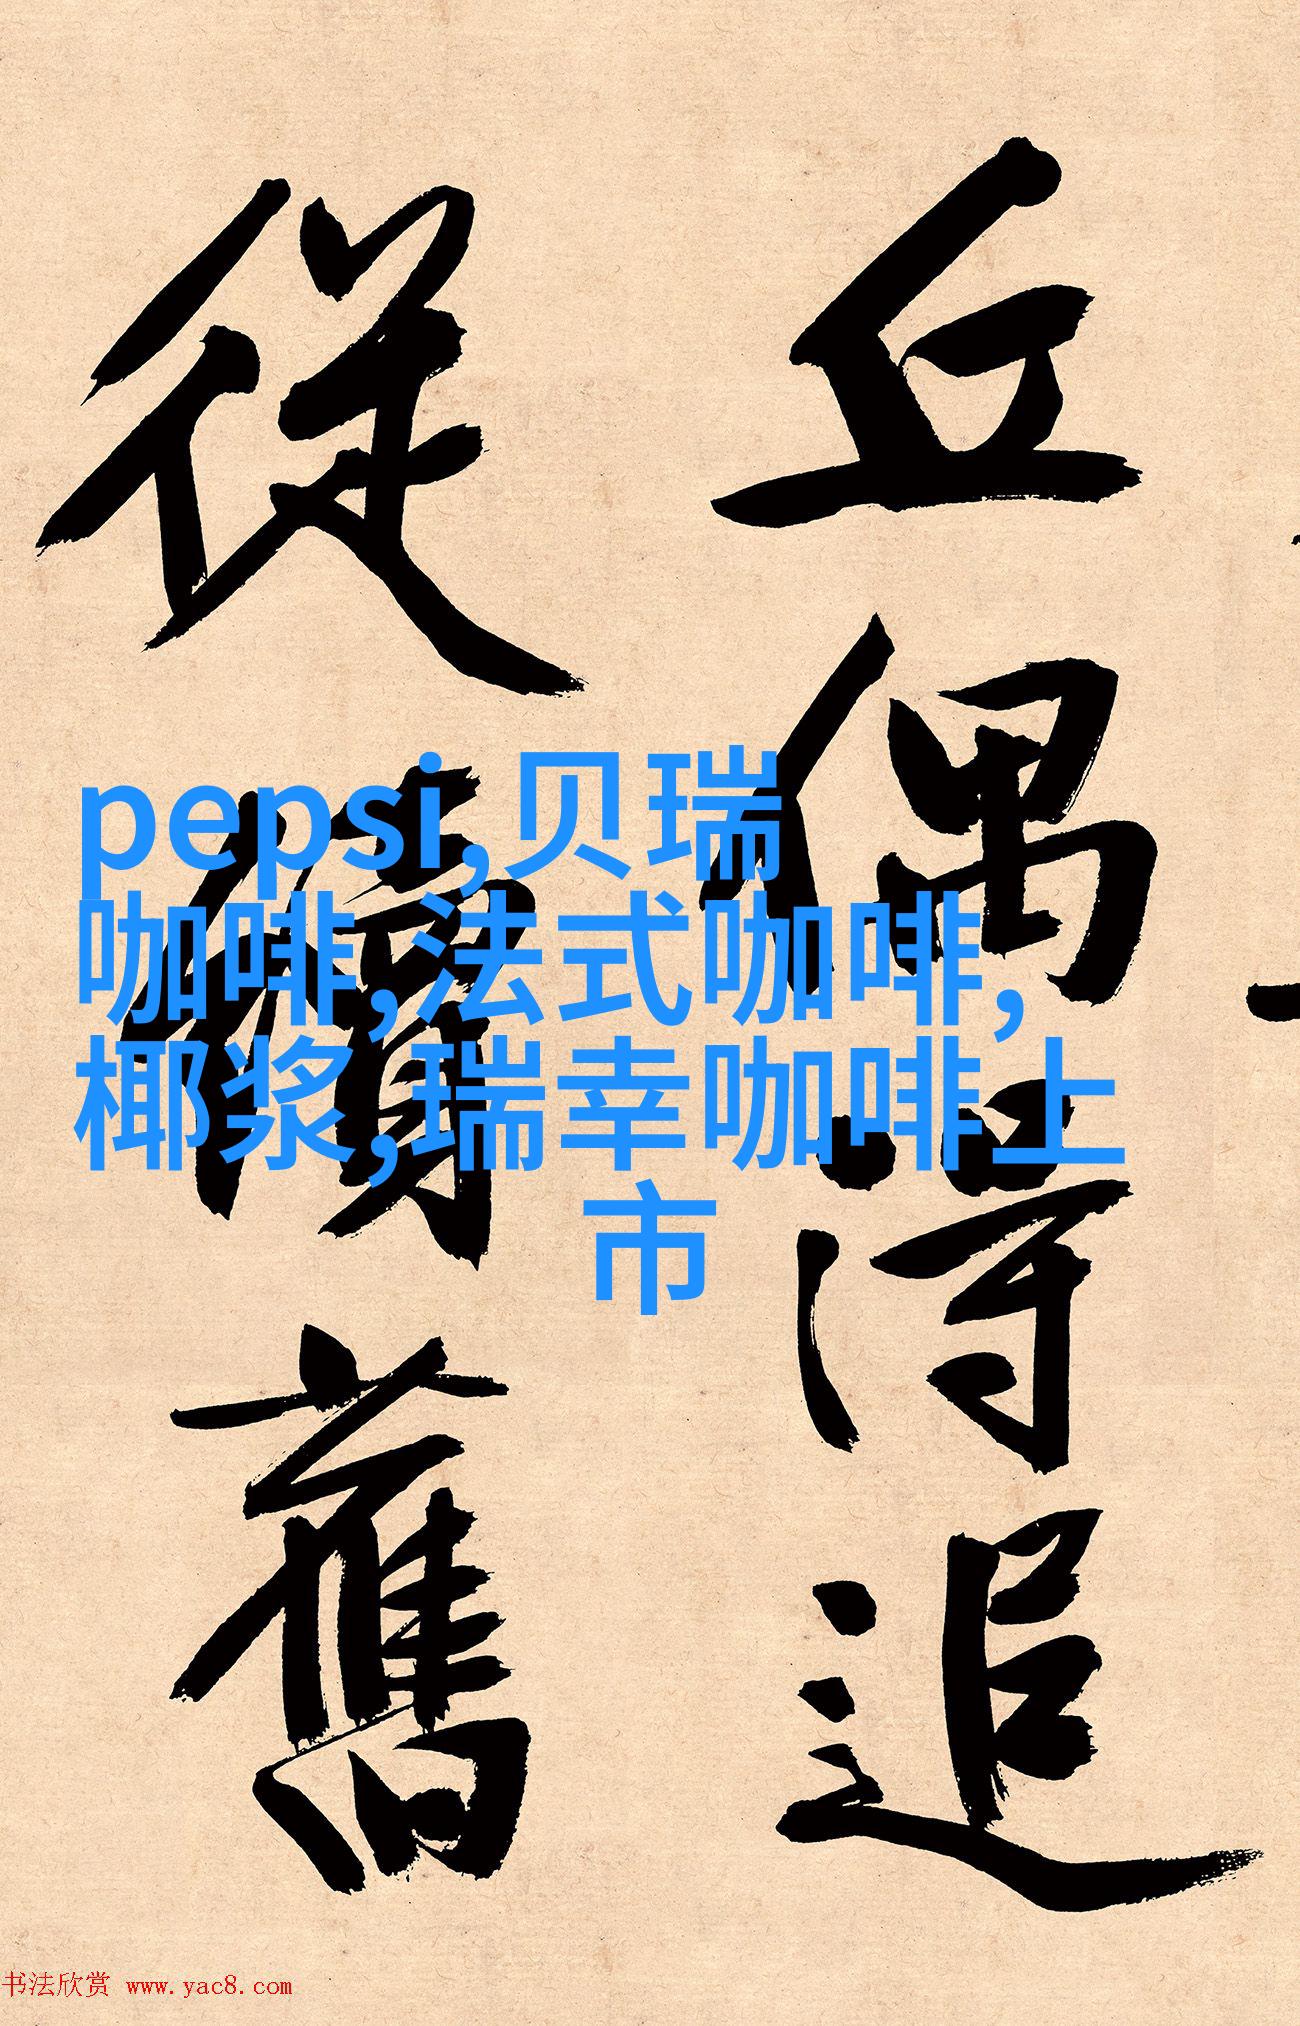 丘偶得追
從舊
pepsi,贝瑞
咖啡,法式咖啡,
椰浆,瑞幸咖啡上
市
书法欣赏 www.yac8.com